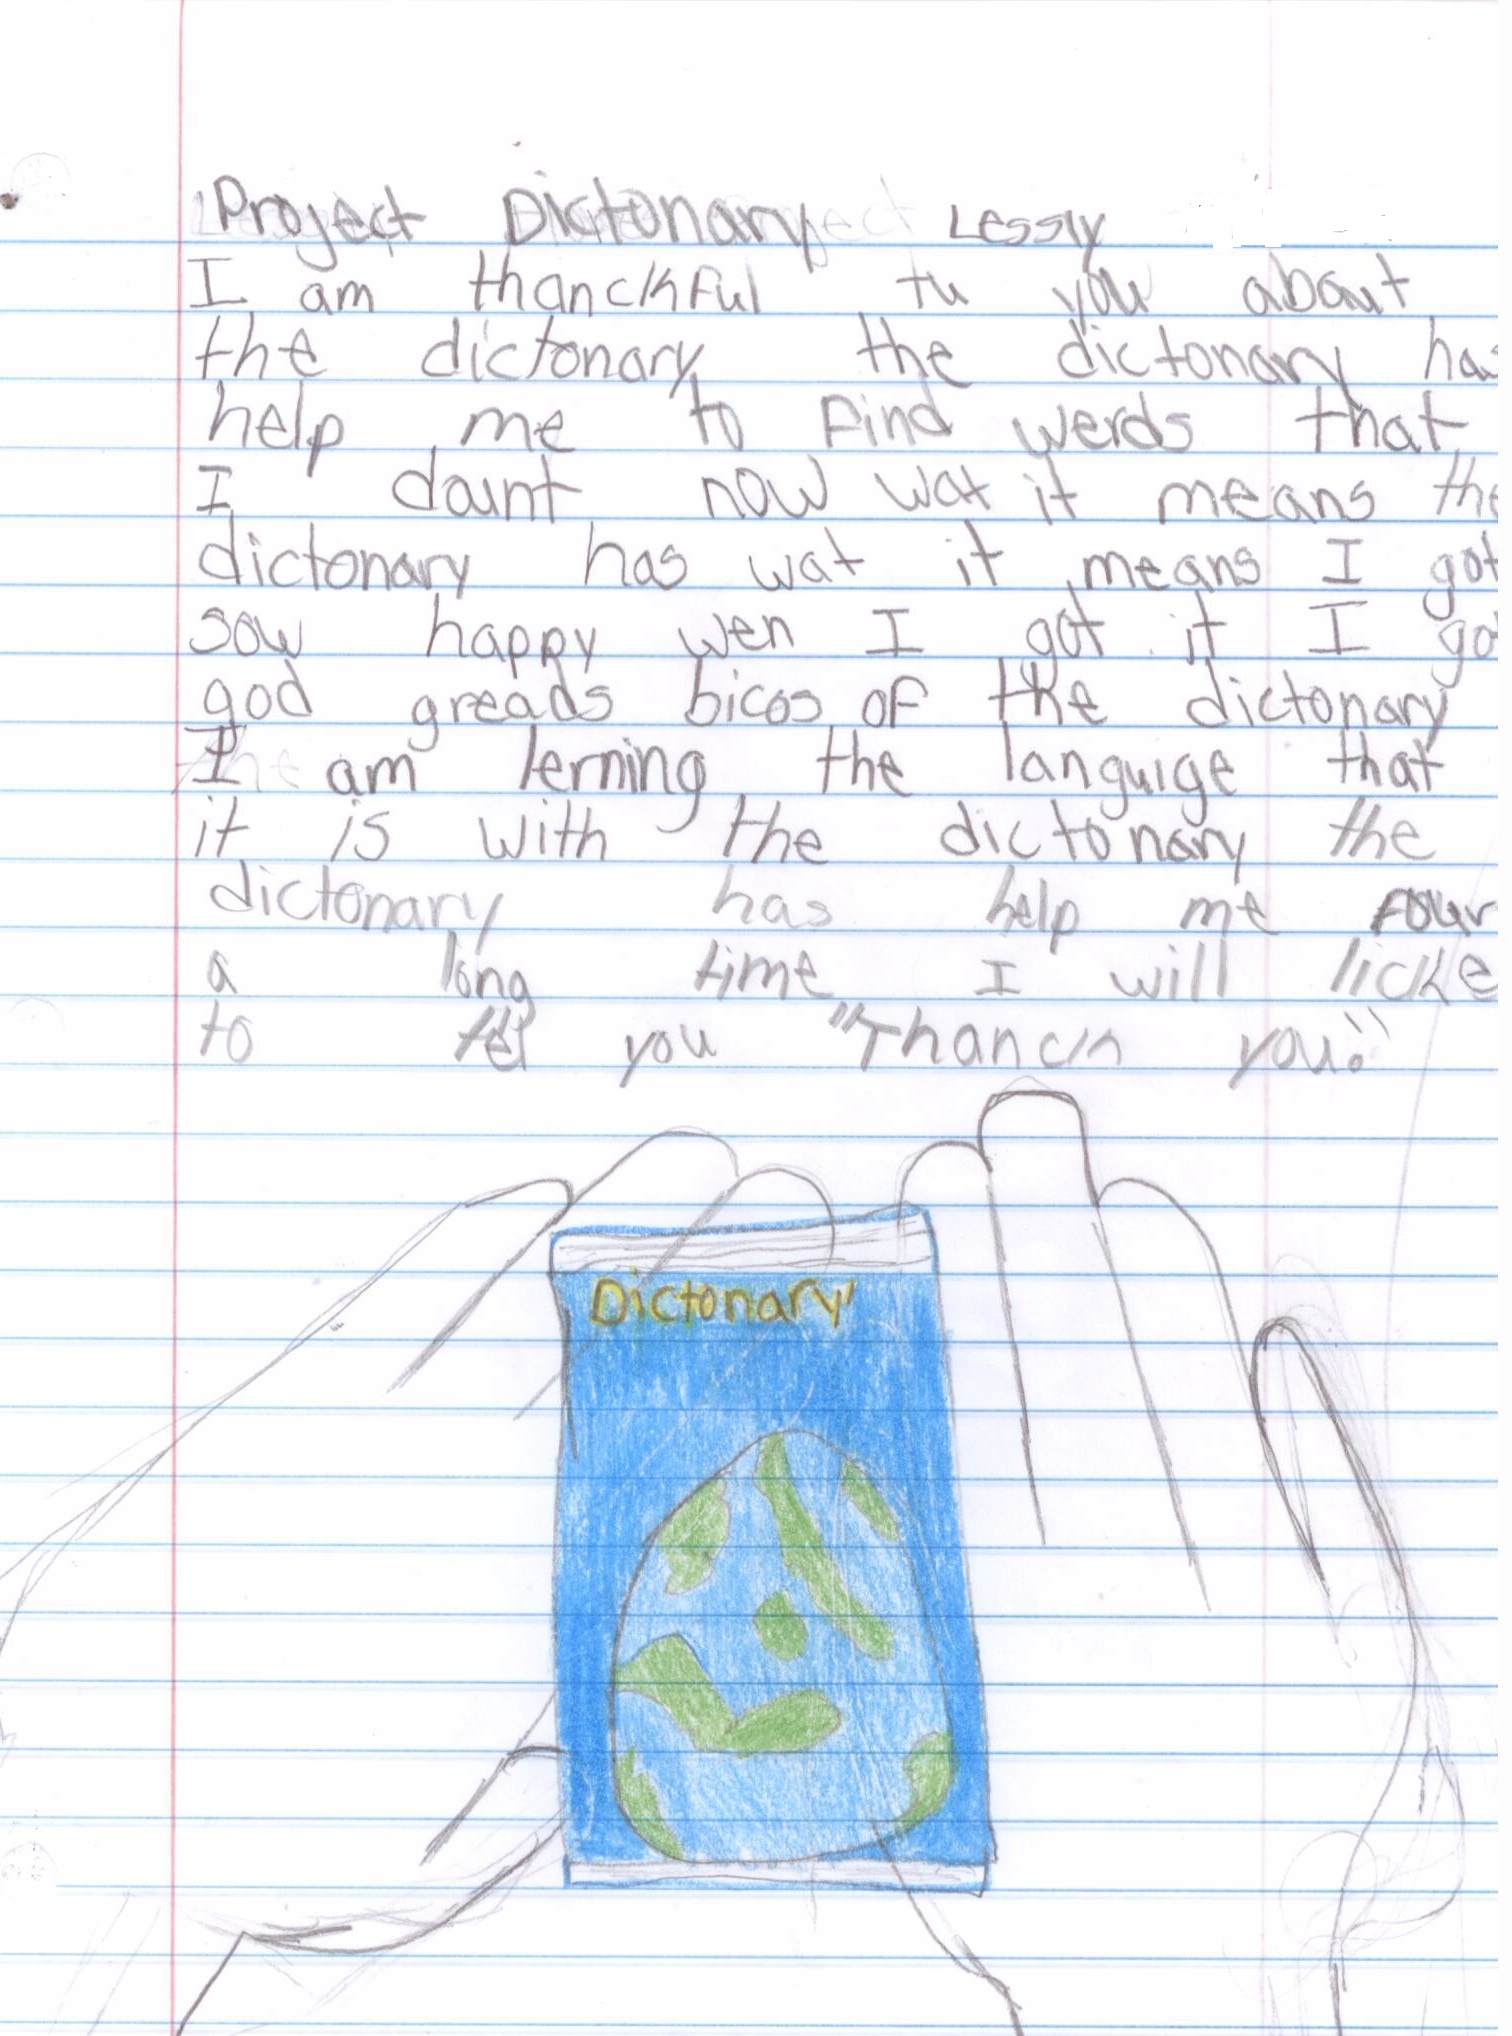 Project Dictonary Lessly
I am thanckful tu you about
the dictonary the dictonary has
help me to find werds that
I daunt now wat it means the
dictonary has wat it means I got
sow happy wen I got it I got
god greads bicos of the dictonary
I am lerning the languige that
it is with the dictonary the
dictonary has help me four
a long time I will licke
to tel you "Thanck you."
Dictonary